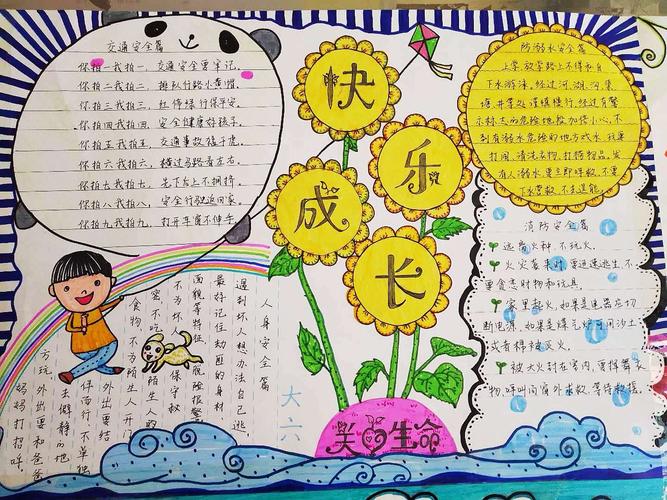 交通安全篇
你拍一我拍一，交通安全要牢记。
你拍二我拍二，排队行路小黄帽。
你拍三我拍三，红停绿行保平安。
你拍四我拍四，安全健康好孩子。
你拍五我拍五，交通事故猛于虎。
你拍六我拍六，横过马路看左右。
你拍七我拍七，先下后上不拥挤。
你拍八我拍八，安全行驶返回家。
你拍九我拍九，打开车窗不伸手。
快
乐
成
长
关
生命
大六
防溺水安全篇
上学放学路上不得私自
下水游泳，经过河、湖、沟、渠、
塘、井等处要慎模行，经过有警
示标志的危险地段加倍小心，不
到有溺水危险的地方戏水
打闹、清洗衣物、打捞物品。发
有人溺水要立即呼救，不要
下水营救，不去逞能。
消防安全篇
远离火种，不玩火。
火灾袭来时要迅速逃生，不
要贪恋财物和玩具。
家里起火，如果是电器应切
断电源，如果是煤气炉可用沙土
或者棉被灭火。
被大火封在室内，要挥舞衣
物，呼叫向窗外求救，等待救援。
人身安全篇
遇到坏人想办法自己逃，
最好记住劫匪的身材
面貌等特征，脱险报警
不为坏人保守秘
密不吃陌生人的
食物，不为陌生人开门
外出要结
伴而行，不单独
去僻静的地
方玩，外出要和爸爸
妈妈打招呼